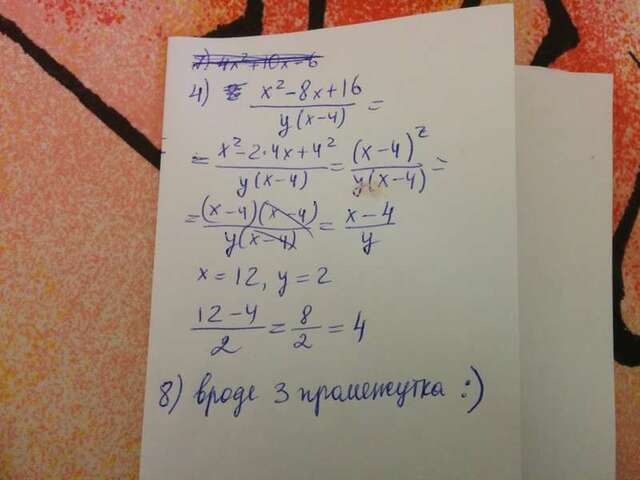 7) 4x²+10x-6
4) x²-8x+16 / y(x-4) =
= x²-2·4x+4² / y(x-4) = (x-4)² / y(x-4) =
= (x-4)(x-4) / y(x-4) = x-4 / y
x=12, y=2
12-4 / 2 = 8 / 2 = 4
8) вроде 3 промежутка :)